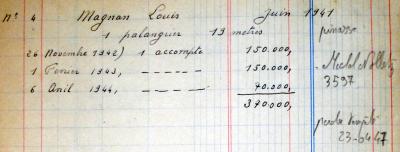 N° 4 Magnan Louis Juin 1941
1 palangrier 13 mètres pinasse
26 Novembre 1942) 1 accompte 150.000,
1 Fevrier 1943, — — — — — 150.000,
3597
6 Avril 1944, — — — — — 70.000,
370.000,
23-04-47